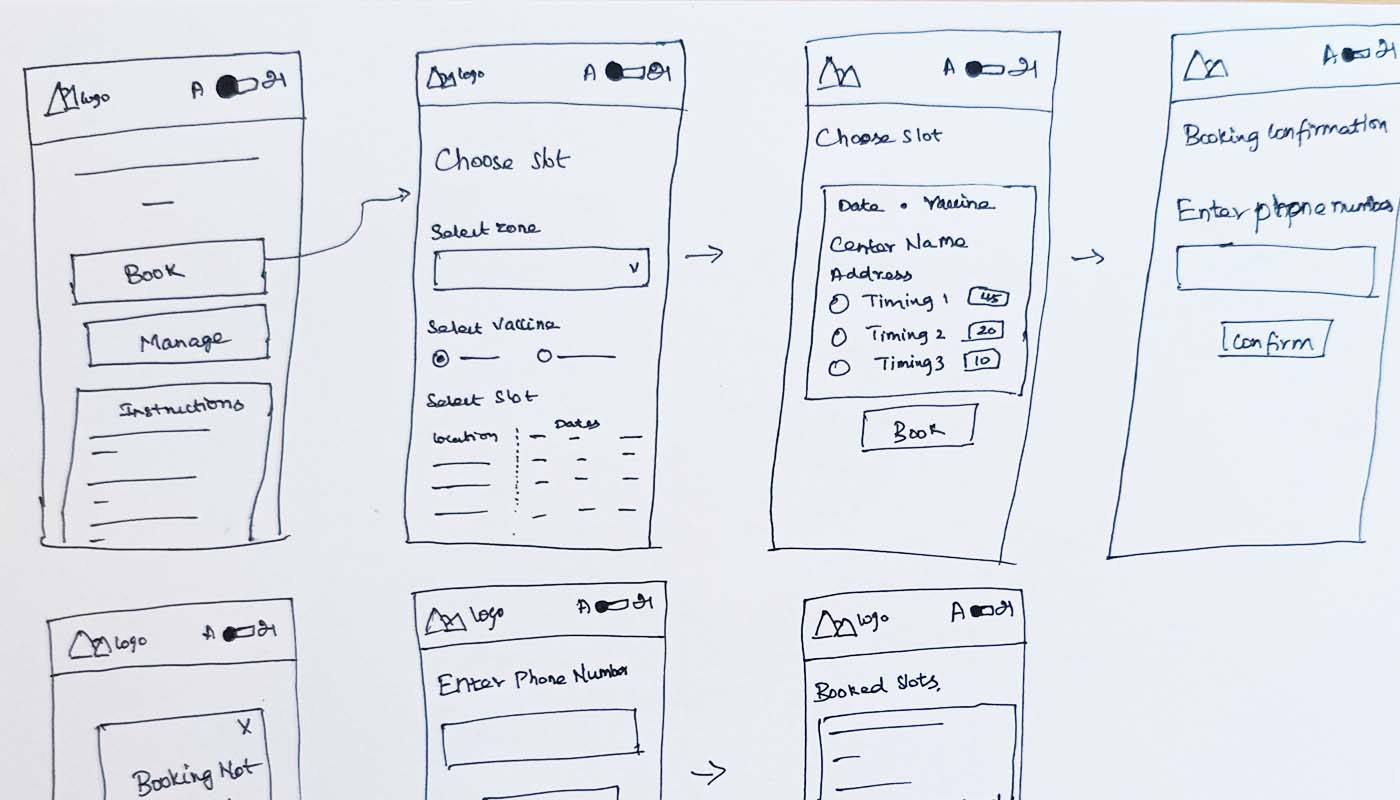 logo A அ
Book
Manage
Instructions
logo A அ
Choose slot
Select zone
Select Vaccine
Select Slot
Location Dates
A அ
Choose slot
Date • Vaccine
Center Name
Address
Timing 1 45
Timing 2 20
Timing 3 10
Book
A அ
Booking Confirmation
Enter phone number
Confirm
logo A அ
X
Booking Not
logo A அ
Enter Phone Number
logo A அ
Booked slots,